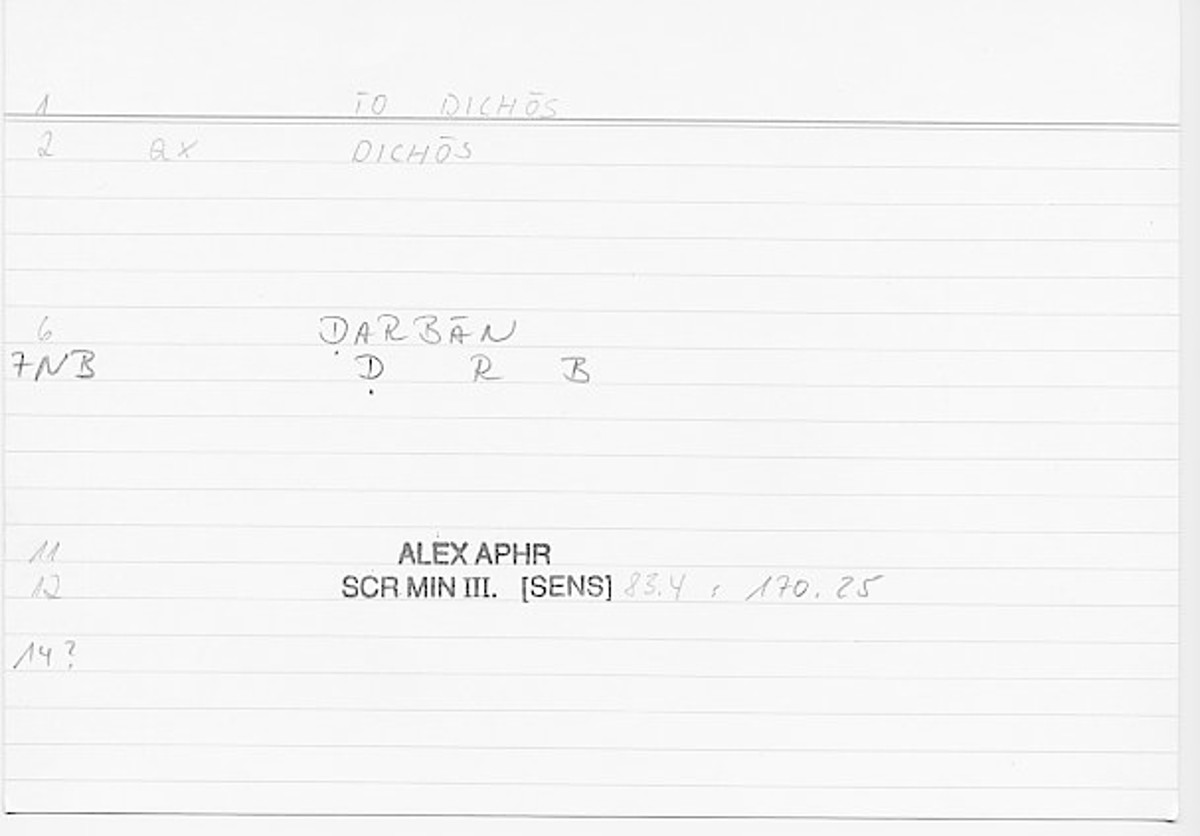 1 TO DICHŌS
2 QX DICHŌS
6 ḌARBĀN
7NB Ḍ R B
11 ALEX APHR
12 SCR MIN III. [SENS] 83.4 : 170.25
14?